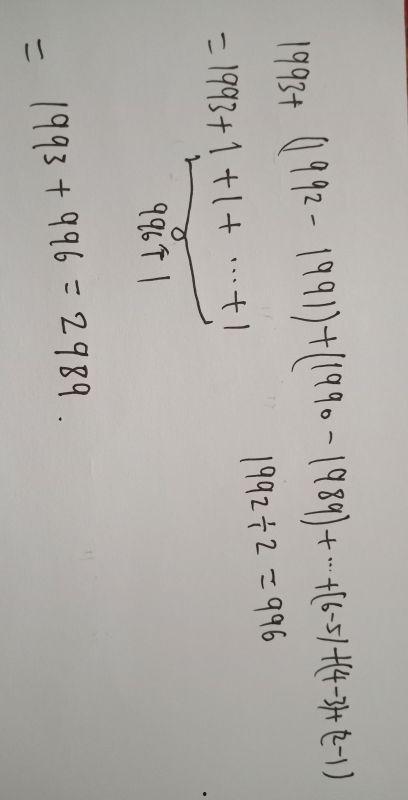 1993+ (1992-1991)+(1990-1989)+…+(6-5)+(4-3)+(2-1)
=1993+1+1+…+1
996个1
1992÷2=996
= 1993+996=2989.